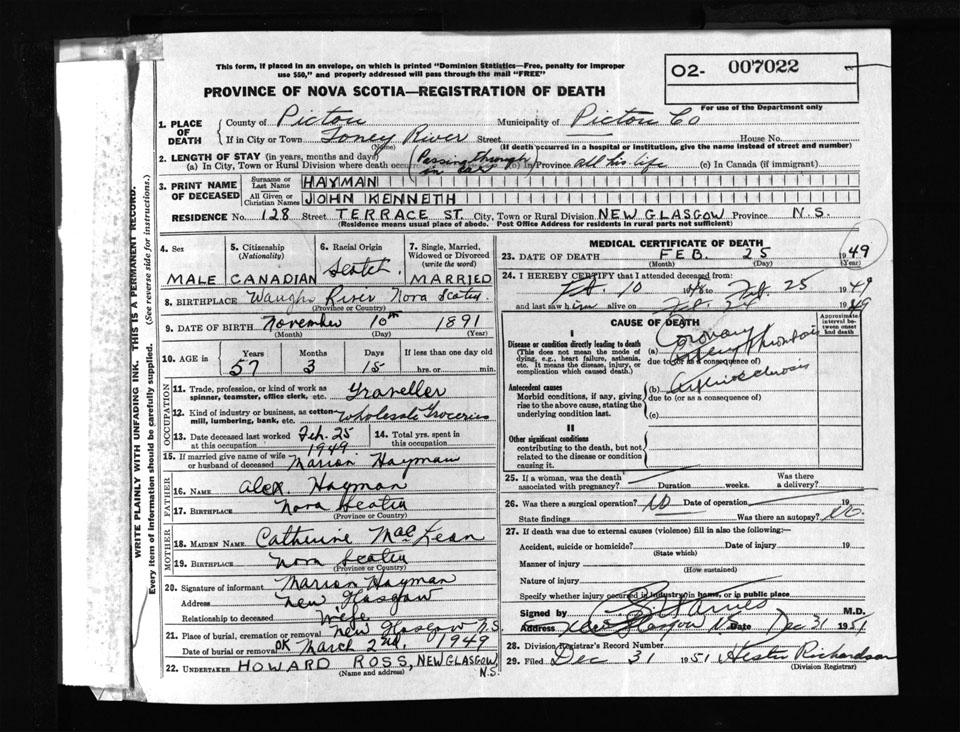 This form, if placed in an envelope, on which is printed "Dominion Statistics—Free, penalty for improper
use $50," and properly addressed will pass through the mail "FREE"
O2- 007022
PROVINCE OF NOVA SCOTIA—REGISTRATION OF DEATH
For use of the Department only
1. PLACE OF DEATH
County of Pictou Municipality of Pictou Co
If in City or Town Toney River Street House No.
(Name) (If death occurred in a hospital or institution, give the name instead of street and number)
2. LENGTH OF STAY (in years, months and days)
(a) In City, Town or Rural Division where death occurred (Passing through in car) (b) In Province all his life (c) In Canada (if immigrant)
3. PRINT NAME OF DECEASED
Surname or Last Name HAYMAN
All Given or Christian Names JOHN KENNETH
RESIDENCE No. 128 Street TERRACE ST. City, Town or Rural Division NEW GLASGOW Province N.S.
(Residence means usual place of abode. Post Office Address for residents in rural parts not sufficient)
WRITE PLAINLY WITH UNFADING INK. THIS IS A PERMANENT RECORD.
Every item of information should be carefully supplied. (See reverse side for instructions.)
4. Sex MALE
5. Citizenship (Nationality) CANADIAN
6. Racial Origin Scotch.
7. Single, Married, Widowed or Divorced (write the word) MARRIED
8. BIRTHPLACE Waughs River Nova Scotia.
(Province or Country)
9. DATE OF BIRTH November 10th 1891
(Month) (Day) (Year)
10. AGE in Years 57 Months 3 Days 15 If less than one day old hrs. or min.
OCCUPATION
11. Trade, profession, or kind of work as spinner, teamster, office clerk, etc. Traveller
12. Kind of industry or business, as cotton-mill, lumbering, bank, etc. Wholesale Groceries
13. Date deceased last worked at this occupation Feb. 25 1949
14. Total yrs. spent in this occupation
15. If married give name of wife or husband of deceased Marion Hayman
FATHER
16. NAME Alex. Hayman
17. BIRTHPLACE Nova Scotia
(Province or Country)
MOTHER
18. MAIDEN NAME Catherine MacLean
19. BIRTHPLACE Nova Scotia
(Province or Country)
20. Signature of informant Marion Hayman
Address New Glasgow
Relationship to deceased Wife
21. Place of burial, cremation or removal New Glasgow N.S.
Date of burial or removal OK March 2nd, 1949
22. UNDERTAKER HOWARD ROSS, NEW GLASGOW, N.S.
(Name and address)
MEDICAL CERTIFICATE OF DEATH
23. DATE OF DEATH FEB. 25 1949
(Month) (Day) (Year)
24. I HEREBY CERTIFY that I attended deceased from:
Feb. 10 19 to Feb. 25 1949
and last saw him alive on Feb. 24 1949
CAUSE OF DEATH
Approximate interval between onset and death
I
Disease or condition directly leading to death
(This does not mean the mode of dying, e.g., heart failure, asthenia, etc. It means the disease, injury, or complication which caused death.)
(a) Coronary artery thrombosis
due to (or as a consequence of)
Antecedent causes
Morbid conditions, if any, giving rise to the above cause, stating the underlying condition last.
(b) Arteriosclerosis
due to (or as a consequence of)
(c)
II
Other significant conditions
contributing to the death, but not related to the disease or condition causing it.
25. If a woman, was the death associated with pregnancy? Duration weeks. Was there a delivery?
26. Was there a surgical operation? No Date of operation 19
State findings Was there an autopsy? No.
27. If death was due to external causes (violence) fill in also the following:—
Accident, suicide or homicide? Date of injury 19
(State which)
Manner of injury
(How sustained)
Nature of injury
Specify whether injury occurred in industry, in home, or in public place
Signed by M.D.
Address New Glasgow NS Date Dec 31 1951
28. Division Registrar's Record Number
29. Filed Dec 31 1951 Hester Richardson
(Division Registrar)